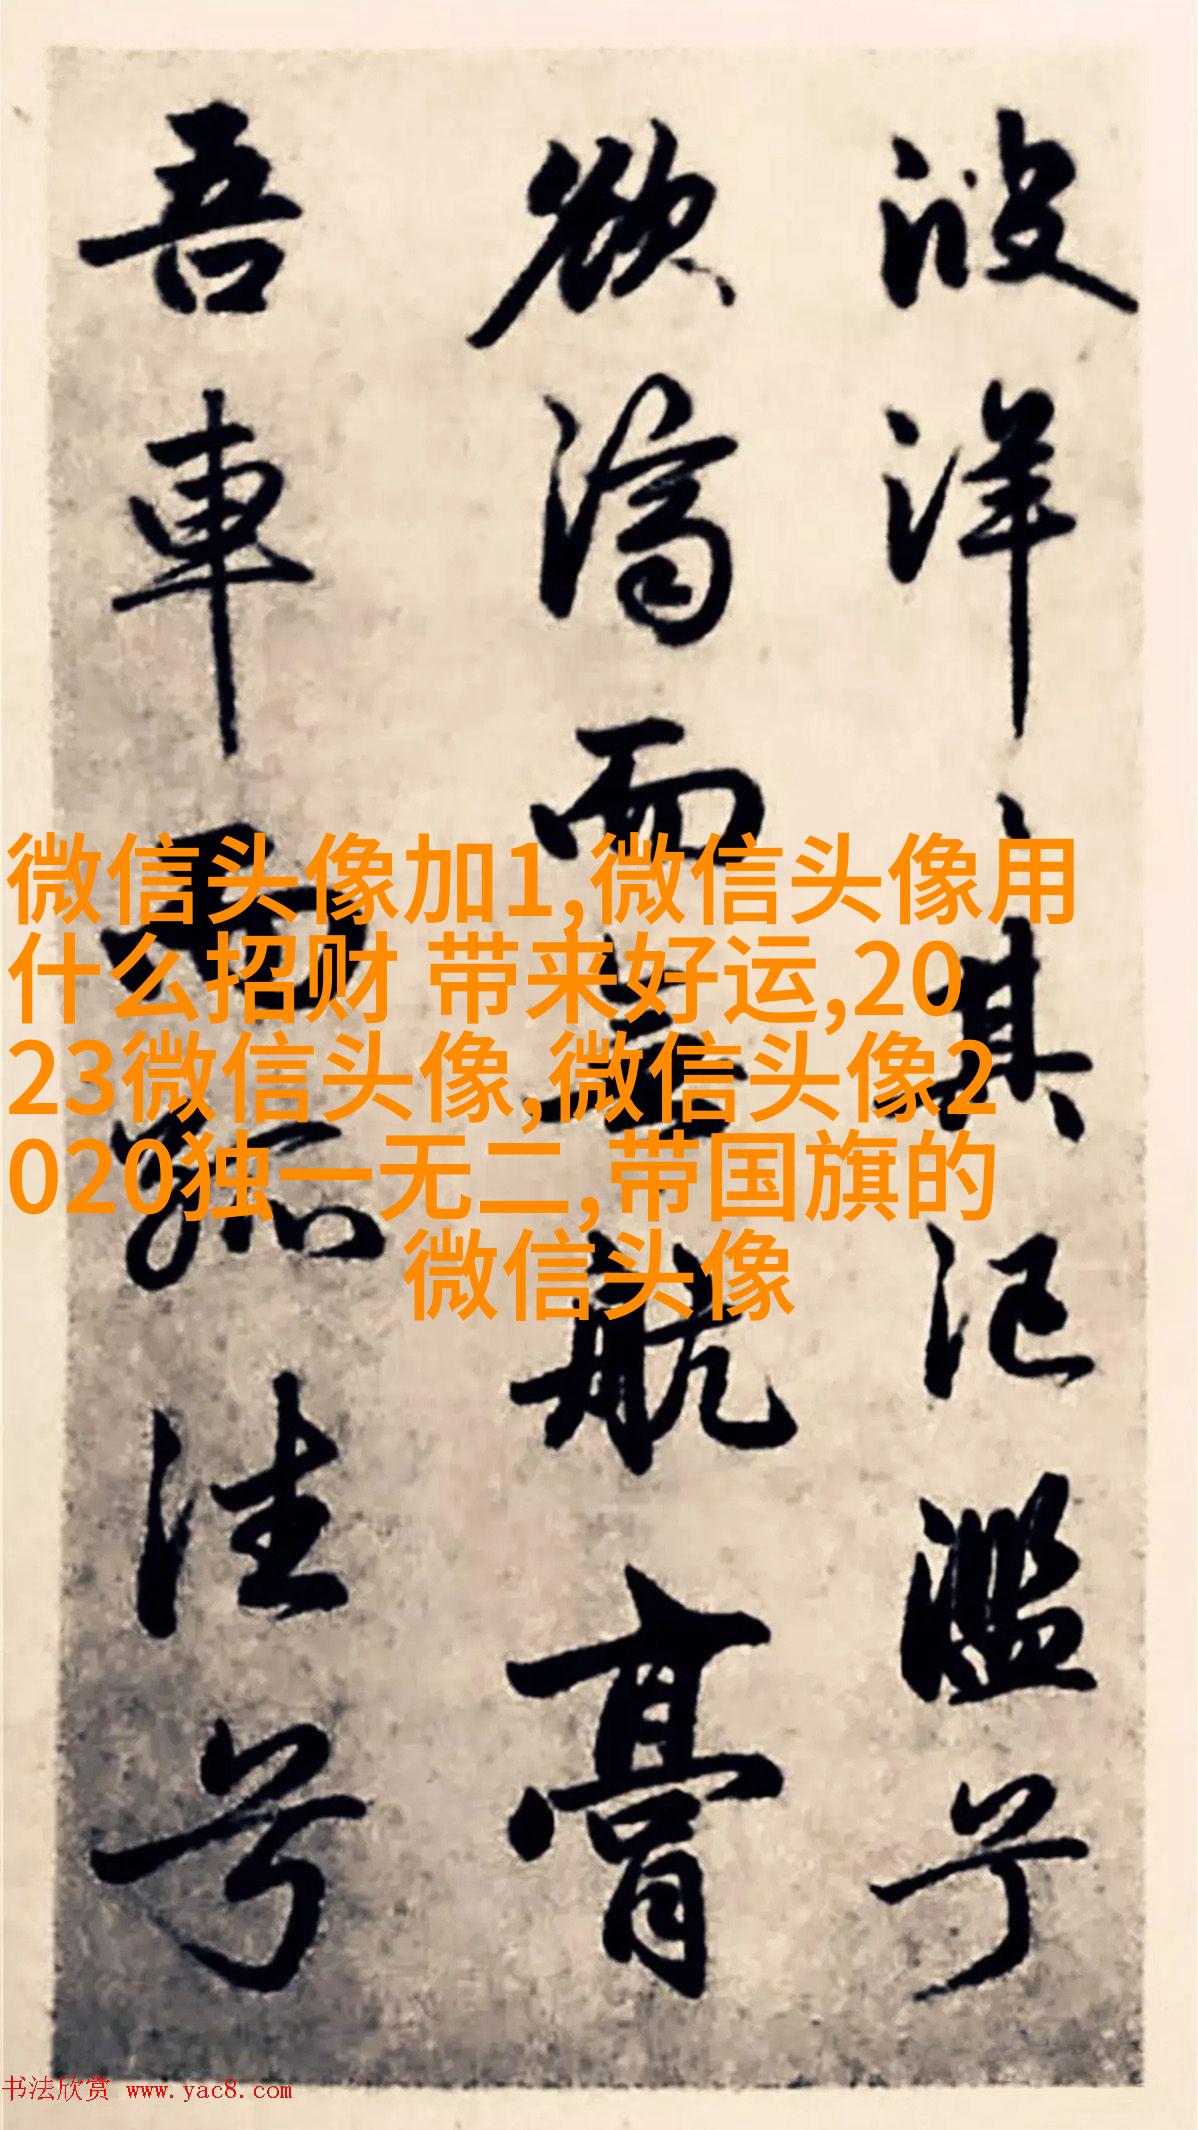 波洋其氾濫兮
欲濟而無航膏
吾車而孤往兮
微信头像加1,微信头像用
什么招财 带来好运,20
23微信头像,微信头像2
020独一无二,带国旗的
微信头像
书法欣赏 www.yac8.com